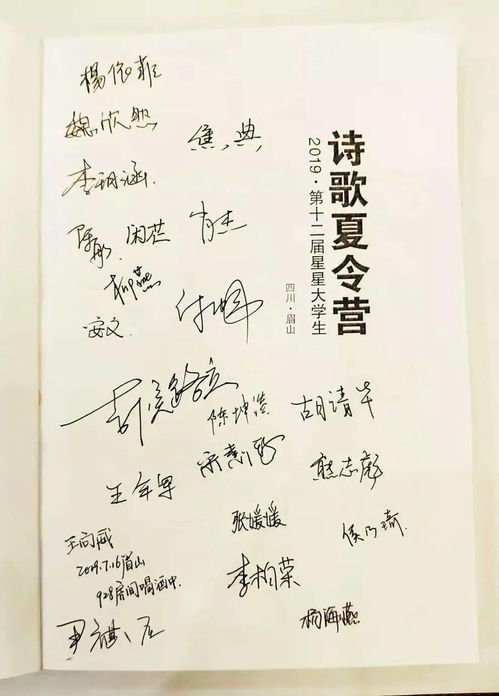 诗歌夏令营
2019·第十二届星星大学生
四川·眉山
楊依菲
魏欣然
焦典
李玥涵
闲芒
肖杰
柳燕
安文
陈坤浩
胡清华
熊志彪
王年军
张媛媛
侯乃琦
王向威
2019.7.16眉山
928房间喝酒中
李柏荣
杨海燕